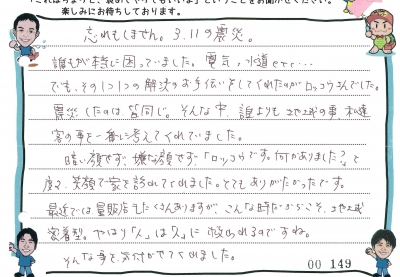 「これはちょっと、褒めてやってもいいよ」ということをお聞かせください。
楽しみにお待ちしております。
忘れもしません。3.11の震災。
誰もが特に困っていました。電気、水道etc...
でも、その1つ1つの解決のお手伝いをしてくれたのがロッコウさんでした。
震災したのは、皆同じ。そんな中、誰よりも地域の事、私達
客の事を一番に考えてくれていました。
暗い顔せず、嫌な顔せず「ロッコウです。何かありました?」と
度々、笑顔で家を訪れてくれました。とてもありがたかったです。
最近では量販店もたくさんありますが、こんな時だからこそ、地域
密着型。やはり「人」は「人」に救われるのですね。
そんな事を気付かせてくれました。
00 149